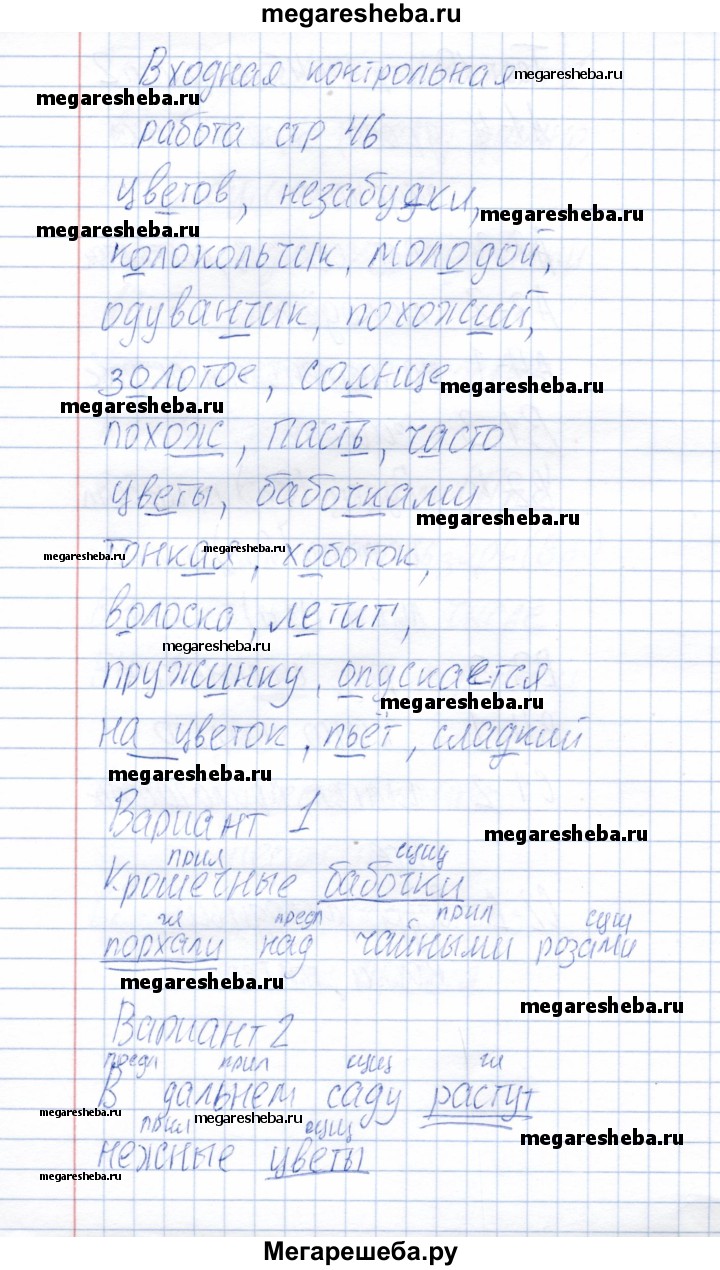 megaresheba.ru
Входная контрольная megaresheba.ru
megaresheba.ru
работа стр 46
цветов, незабудки, megaresheba.ru
megaresheba.ru
колокольчик, молодой,
одуванчик, похожий,
золотое, солнце megaresheba.ru
megaresheba.ru
похож, пасть, часто
цветы, бабочками
megaresheba.ru
megaresheba.ru megaresheba.ru
тонкая, хоботок,
волоска, летит,
megaresheba.ru
пружинку, опускается
megaresheba.ru
на цветок, пьёт, сладкий
megaresheba.ru
Вариант 1 megaresheba.ru
прил сущ
Крошечные бабочки
гл предл прил сущ
порхали над чайными розами
megaresheba.ru
megaresheba.ru
Вариант 2
предл прил сущ гл
В дальнем саду растут
megaresheba.ru megaresheba.ru
прил сущ megaresheba.ru
нежные цветы
megaresheba.ru
Мегарешеба.ру